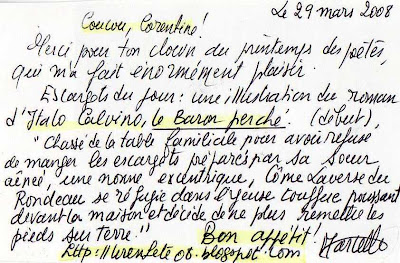 Le 29 mars 2008
Coucou, Corentine!
Merci pour ton clown du printemps des poètes,
qui m'a fait énormément plaisir.
Escargots du jour : une illustration du roman
d'Italo Calvino, le Baron perché. (début),
"Chassé de la table familiale pour avoir refusé
de manger les escargots préparés par sa soeur
aînée, une nonne excentrique, Côme Laverse du
Rondeau se réfugie dans l'yeuse touffue poussant
devant la maison et décide de ne plus remettre les
pieds sur terre."
Bon appétit!